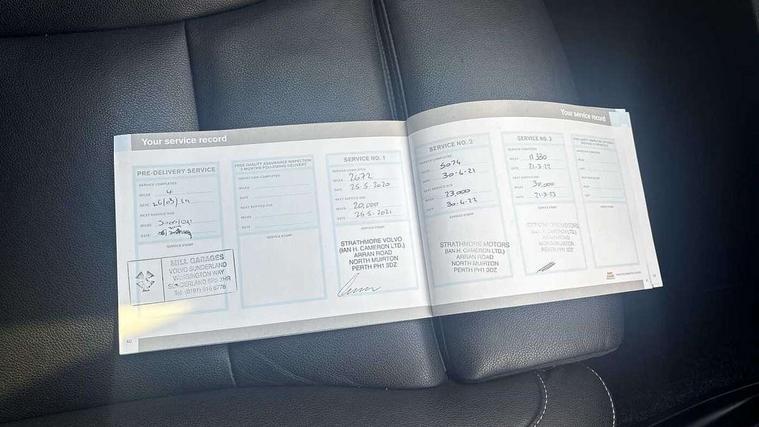 Your service record
PRE-DELIVERY SERVICE
SERVICE COMPLETED
MILES 4
DATE
NEXT SERVICE DUE
MILES
DATE
SERVICE STAMP
MILL GARAGES
VOLVO SUNDERLAND
WESSINGTON WAY
SUNDERLAND SR5 3HR
FREE QUALITY ASSURANCE INSPECTION
3 MONTHS FOLLOWING DELIVERY
INSPECTION COMPLETED
MILES
DATE
NEXT SERVICE DUE
MILES
DATE
SERVICE STAMP
SERVICE NO. 1
SERVICE COMPLETED
MILES 2672
DATE 25.5.2020
NEXT SERVICE DUE
MILES 20,000
DATE 24.5.2021
SERVICE STAMP
STRATHMORE VOLVO
(IAN H. CAMERON LTD.)
ARRAN ROAD
NORTH MUIRTON
PERTH PH1 3DZ
Your service record
SERVICE NO. 2
SERVICE COMPLETED
MILES 5074
DATE 30.4.21
NEXT SERVICE DUE
MILES 23,000
DATE 30.4.22
SERVICE STAMP
STRATHMORE MOTORS
(IAN H. CAMERON LTD.)
ARRAN ROAD
NORTH MUIRTON
PERTH PH1 3DZ
SERVICE NO. 3
SERVICE COMPLETED
MILES 11 330
DATE 21.3.22
NEXT SERVICE DUE
MILES 30,000
DATE 21.3.23
SERVICE STAMP
STRATHMORE MOTORS
(IAN H. CAMERON LTD.)
ARRAN ROAD
NORTH MUIRTON
PERTH PH1 3DZ